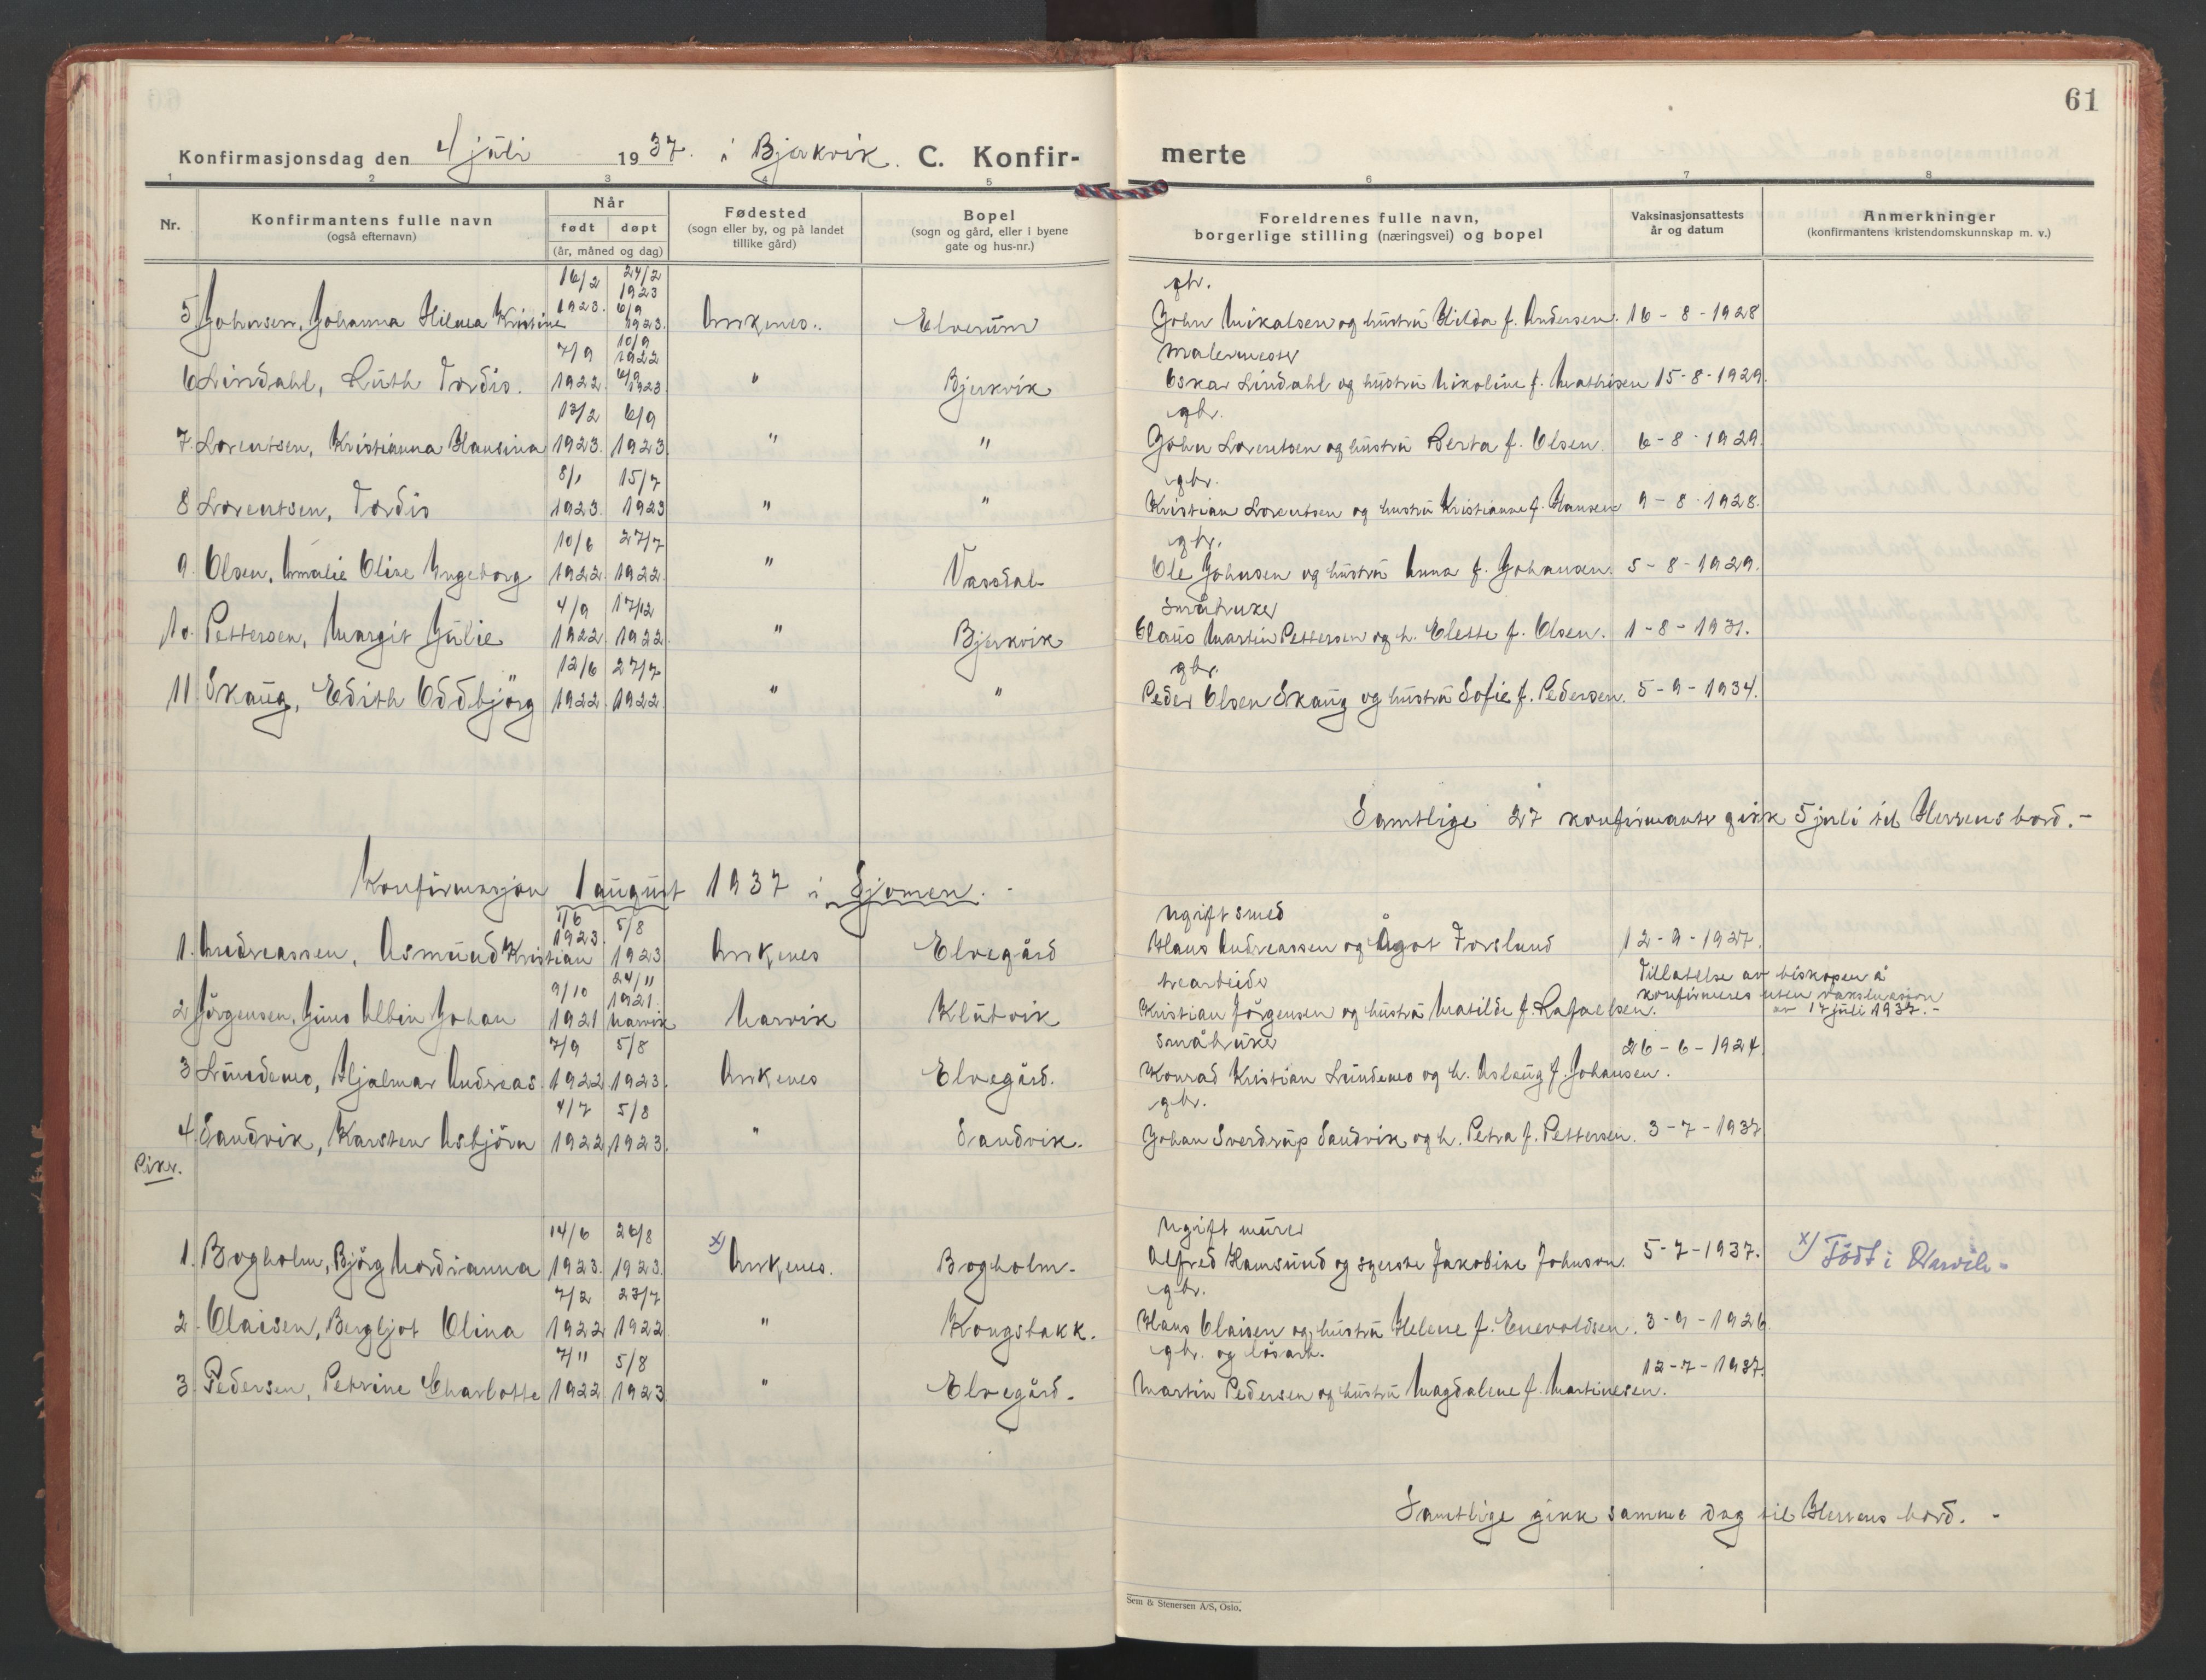 61
Konfirmasjonsdag den 4 juli 1937. i Bjerkvik. C. Konfirmerte
1 2 3 4 5 6 7 8
Nr. Konfirmantens fulle navn (også efternavn) Når født døpt (år, måned og dag) Fødested (sogn eller by, og på landet tillike gård) Bopel (sogn og gård, eller i byene gate og hus-nr.) Foreldrenes fulle navn, borgerlige stilling (næringsvei) og bopel Vaksinasjonsattests år og datum Anmerkninger (konfirmantens kristendomskunnskap m. v.)
16/2 24/2 1923 gbr.
5 Johnsen, Johanna Hilma Kristine 1923. 6/9 1923. Ankenes. Elverum John Mikalsen og hustru Hilda f. Andersen. 16-8-1928
7/9 10/9 1922 Malermester
6 Lindahl, Ruth Tordis. 1922. 6/9 1923. " Bjerkvik Oskar Lindahl og hustru Nikoline f. Mathisen 15-8-1929.
13/2 6/9 gbr.
7. Lorentsen, Kristianna Hansina 1923. 1923. " " John Lorentsen og hustru Berta f. Olsen. 6-8-1929.
8/1 15/7 gbr.
8 Lorentsen, Tordis 1923. 1923 " " Kristian Lorentsen og hustru Kristianne f. Hansen 9-8-1928.
10/6 27/7 gbr.
9. Olsen, Amalie Olise Ingeborg 1922. 1922. " Vassdal Ole Johnsen og hustru Anna f. Johansen. 5-8-1929.
4/9 17/12 Småbruker
10. Pettersen, Margit Julie 1922. 1922. " Bjerkvik Claus Martin Pettersen og h. Elette f. Olsen. 1-8-1931.
12/6 27/7 gbr.
11 Skaug, Edith Oddbjörg 1922. 1922 " " Peder Olsen Skaug og hustru Sofie f. Pedersen. 5-9-1934.
Samtlige 27 konfirmanter gikk 5 juli til Herrens bord.-
Konfirmasjon 1 august 1937 i Sjomen.-
1/6 5/8 Ugift smed
1. Andreassen, Asmund Kristian 1923. 1923 Ankenes Elvegård Hans Andreassen og Ågot Forslund 12-9-1927.
9/10 24/11 trearbeider Tillatelse av biskopen å
2 Jörgensen, Albin Johan 1921 1921. Narvik Narvik Klubvik Kristian Jörgensen og hustru Matilde f. Rafaelsen. konfirmeres uten vaksinasjon
av 17 juli 1937.-
7/9 5/8 Småbruker
3 Lundemo, Hjalmar Andreas. 1922. 1923. Ankenes Elvegård. Konrad Kristian Lundemo og h. Aslaug f. Johansen. 26-6-1924.
4/7 5/8 gbr.
4. Sandvik, Karsten Asbjörn 1922. 1923. " Sandvik. Johan Sverdrup Sandvik og h. Petra f. Pettersen. 3-7-1937
Piker.
14/6 26/8 Ugift murer
1. Bogholm, Björg Nordianna 1923. 1923. x) Ankenes. Bogholm. Alfred Hamsund og Jakobine Johnson. 5-7-1937. x) Född i Narvik-
7/2 23/7 gbr.
2. Olaisen, Bergljot Olina 1922 1922 " Kongsbakk. Hans Olaisen og hustru Helene f. Enevoldsen. 3-9-1926.
7/11 5/8 gbr. og lösarb.
3. Pedersen, Petrine Charlotte 1922 1923 " Elvegård. Martin Pedersen og hustru Magdalene f. Martinesen. 12-7-1937.
Samtlige gikk samme dag til Herrens bord.-
Sem & Stenersen A/S, Oslo.